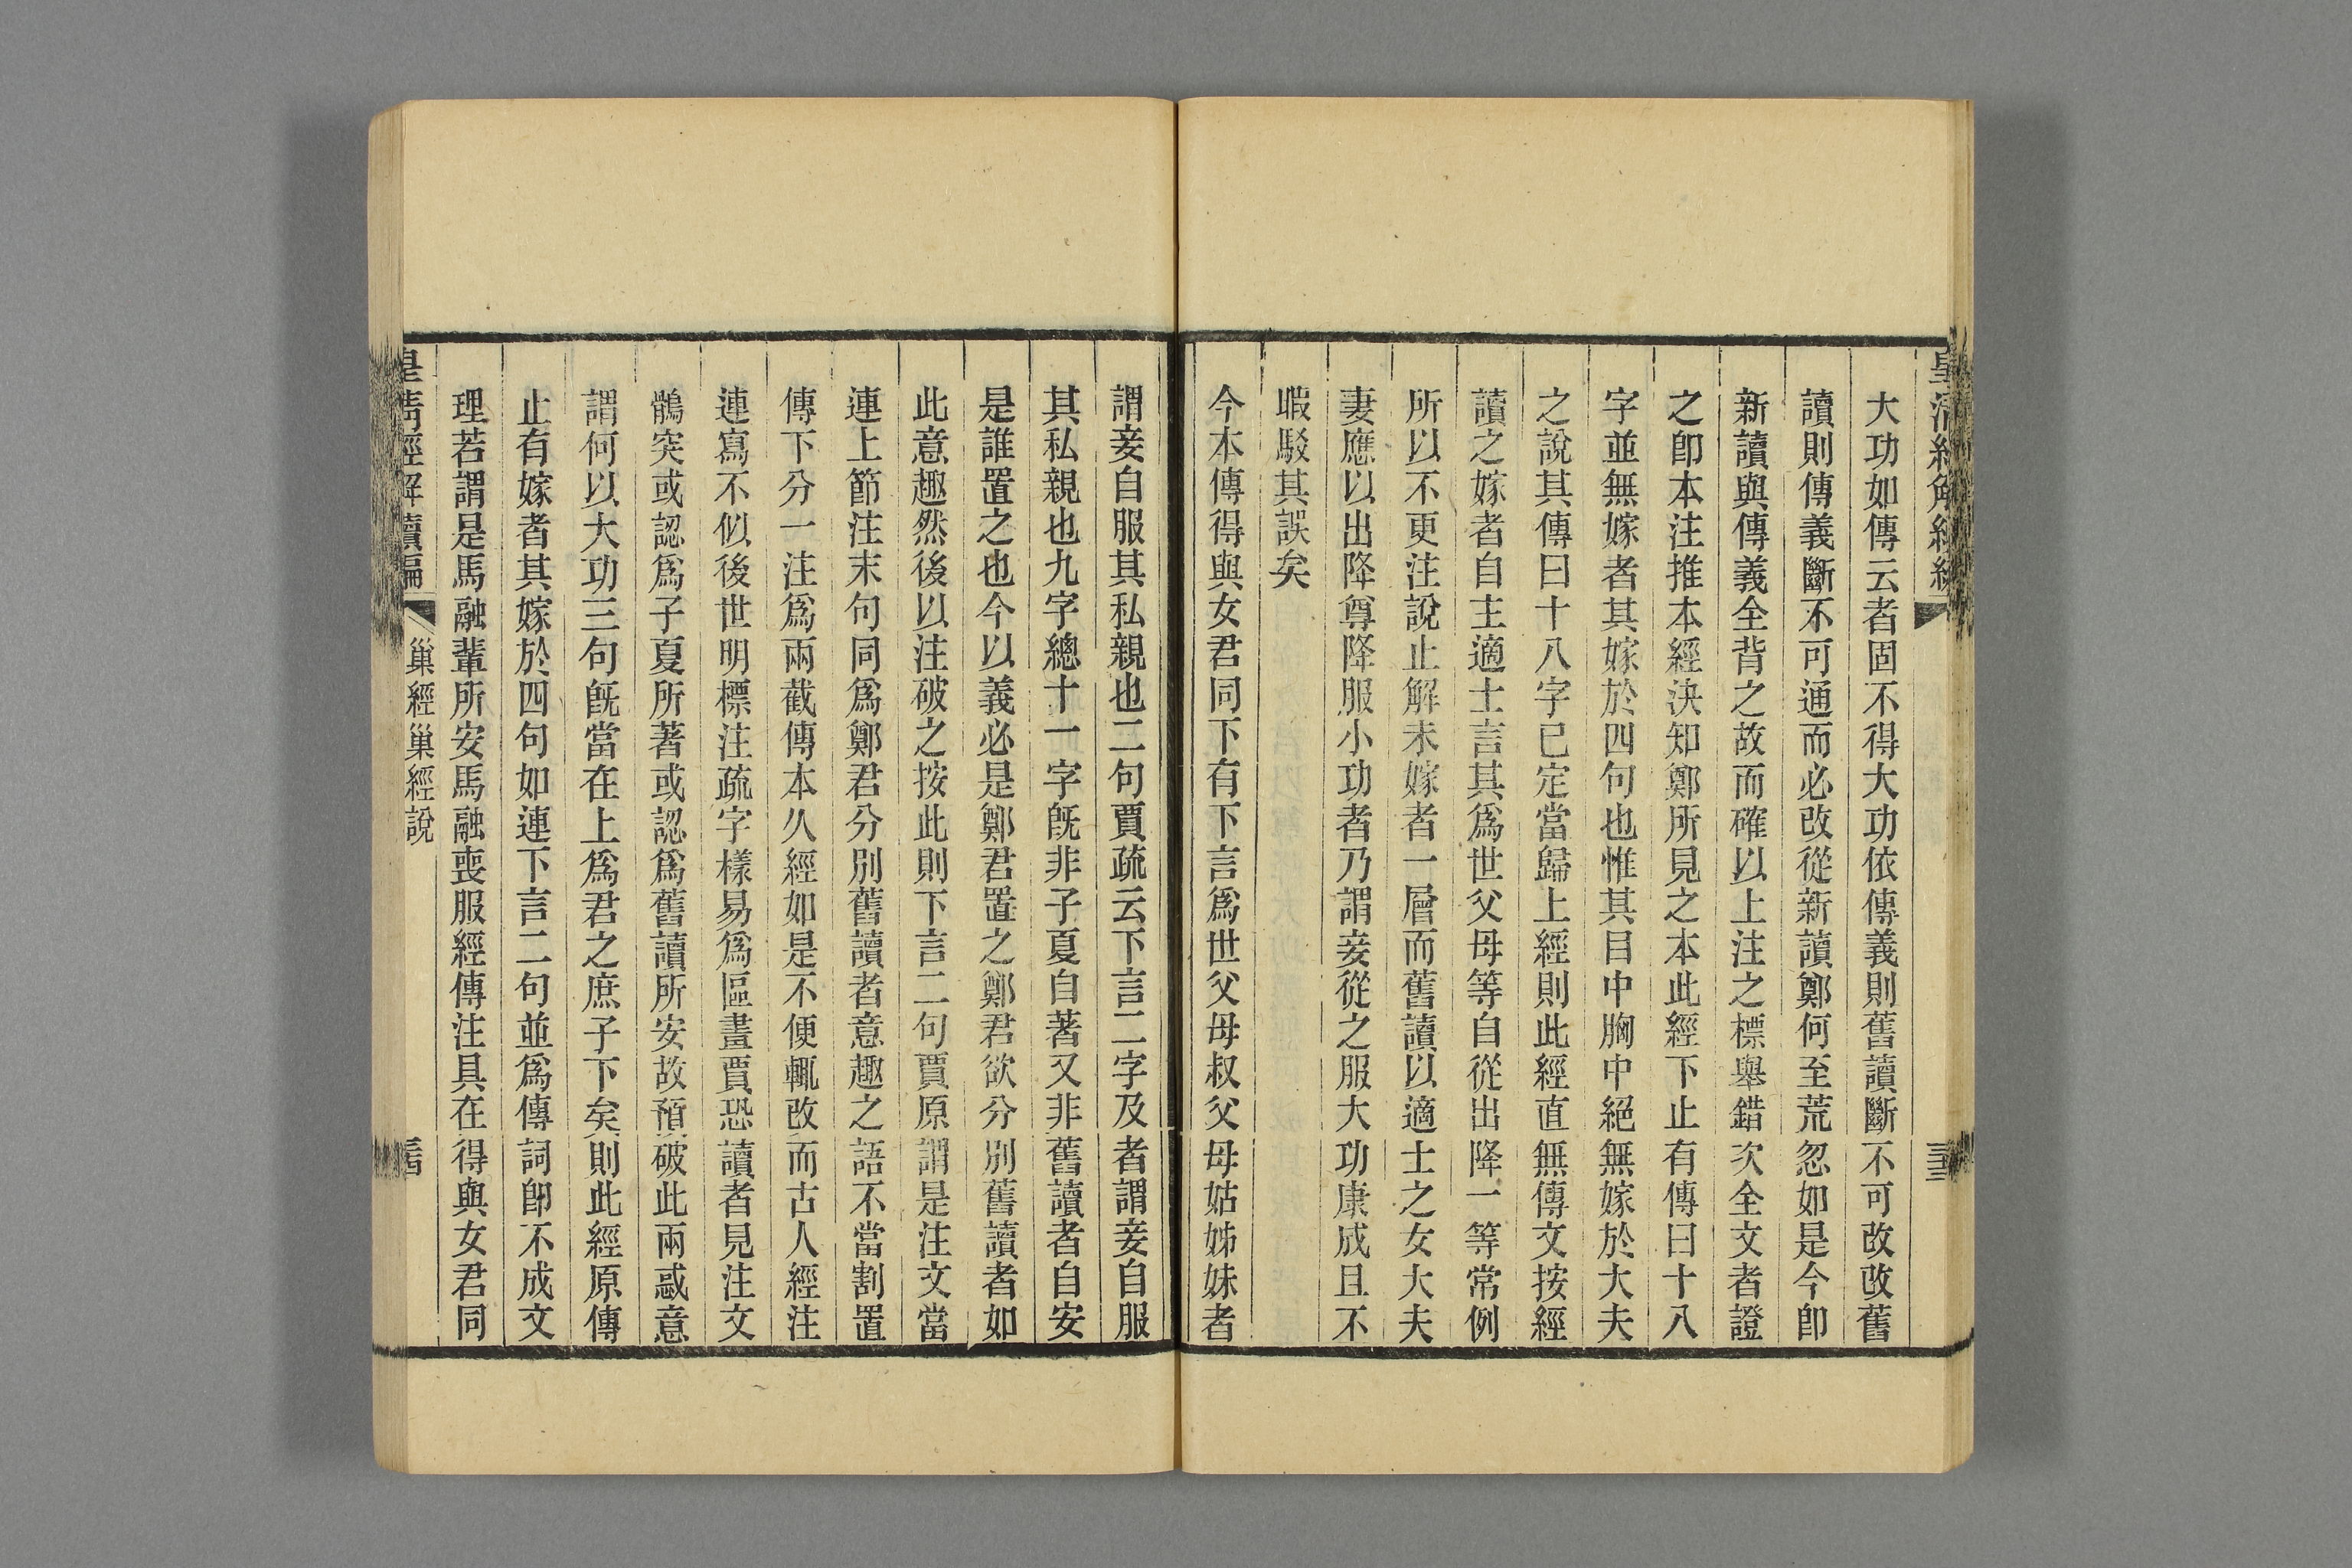 大功如傳云者固不得大功依傳義則舊讀斷不可改改舊
讀則傳義斷不可通而必改從新讀鄭何至荒忽如是今卽
新讀與傳義全背之故而確以上注之標舉錯次全文者證
之卽本注推本經決知鄭所見之本此經下止有傳曰十八
字並無嫁者其嫁於四句也惟其目中胸中絕無嫁於大夫
之說其傳曰十八字已定當歸上經則此經直無傳文按經
讀之嫁者自主適士言其爲世父母等自從出降一等常例
所以不更注說止解未嫁者一層而舊讀以適士之女大夫
妻應以出降尊降服小功者乃謂妾從之服大功康成且不
暇駁其誤矣
今本傳得與女君同下有下言爲世父母叔父母姑姊妹者
謂妾自服其私親也二句賈疏云下言二字及者謂妾自服
其私親也九字總十一字旣非子夏自著又非舊讀者自安
是誰置之也今以義必是鄭君置之鄭君欲分別舊讀者如
此意趣然後以注破之按此則下言二句賈原謂是注文當
連上節注末句同爲鄭君分別舊讀者意趣之語不當割置
傳下分一注爲兩截傳本久經如是不便輒改而古人經注
連寫不似後世明標注疏字樣易爲區畫賈恐讀者見注文
鶻突或認爲子夏所著或認爲舊讀所安故預破此兩惑意
謂何以大功三句旣當在上爲君之庶子下矣則此經原傳
止有嫁者其嫁於四句如連下言二句並爲傳詞卽不成文
理若謂是馬融輩所安馬融喪服經傳注具在得與女君同
皇清經解續編
巢經巢經說